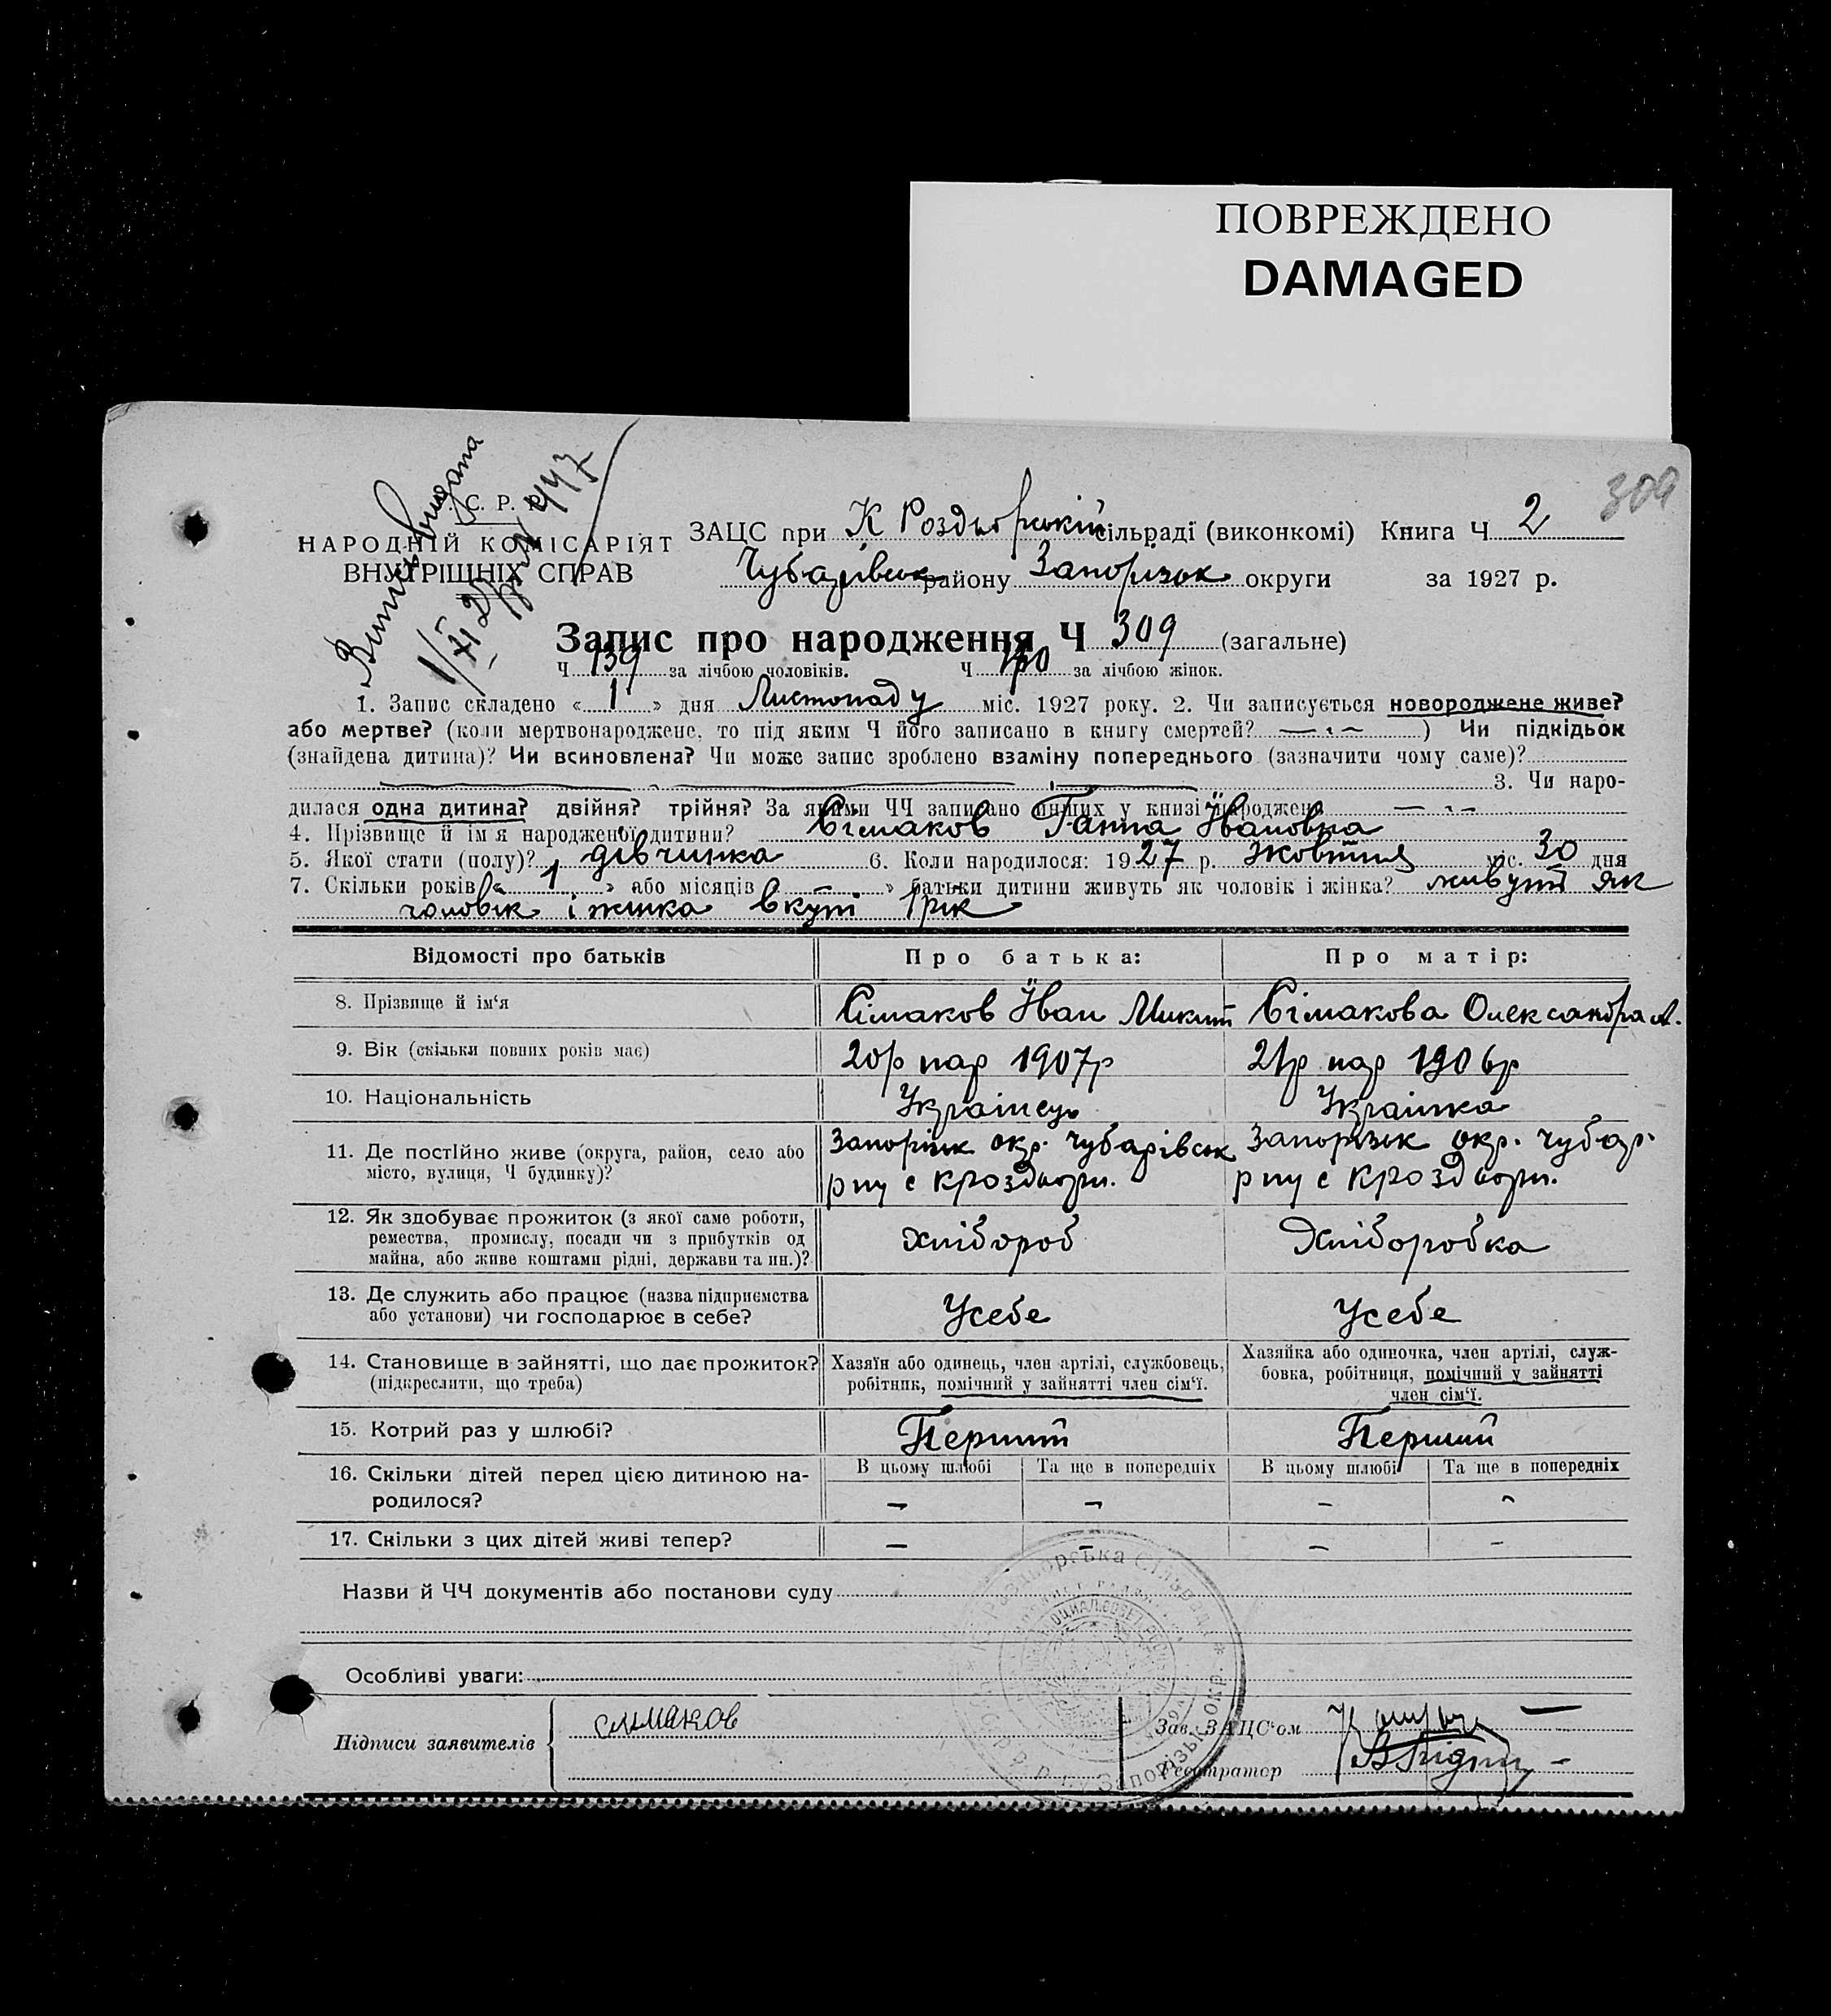 ПОВРЕЖДЕНО
DAMAGED
309
Витись видана
С. Р. Р.
НАРОДНІЙ КОМІСАРІЯТ
ВНУТРІШНІХ СПРАВ
ЗАЦС при К Роздорській сільраді (виконкомі) Книга Ч 2
Чубарівськ району Запорізьк округи за 1927 р.
Запис про народження Ч 309 (загальне)
Ч 139 за лічбою чоловіків. Ч 170 за лічбою жінок.
1. Запис складено « 1 » дня Листопаду міс. 1927 року. 2. Чи записується новороджене живе?
або мертве? (коли мертвонароджене, то під яким Ч його записано в книгу смертей? — ) Чи підкідьок
(знайдена дитина)? Чи всиновлена? Чи може запис зроблено взаміну попереднього (зазначити чому саме)?
3. Чи наро-
дилася одна дитина? двійня? трійня? За якими ЧЧ записано инших у книзі народжень — -
4. Прізвище й імʼя народженої дитини? Сімаков Ганна Івановна
5. Якої стати (полу)? 1 дівчинка 6. Коли народилося: 1927 р. жовтня міс. 30 дня
7. Скільки років « 1 » або місяців « — » батьки дитини живуть як чоловік і жінка? живуть як
чоловік і жинка вкупі 1 рік
Відомості про батьків Про батька: Про матір:
8. Прізвище й імʼя Сімаков Іван Микит Сімакова Олександра А.
9. Вік (скільки повних років має) 20р нар 1907р 21р нар 1906р
10. Національність Українець Українка
11. Де постійно живе (округа, район, село або місто, вулиця, Ч будинку)? Запорізьк окр. Чубарівськ рну с Кроздори. Запорізьк окр. Чубар. рну с Кроздори.
12. Як здобуває прожиток (з якої саме роботи, ремества, промислу, посади чи з прибутків од майна, або живе коштами рідні, держави та ин.)? хлібороб Хліборобка
13. Де служить або працює (назва підприємства або установи) чи господарює в себе? Усебе Усебе
14. Становище в зайнятті, що дає прожиток? (підкреслити, що треба) Хазяїн або одинець, член артілі, службовець, робітник, помічний у зайнятті член сімʼї. Хазяйка або одиночка, член артілі, служ-бовка, робітниця, помічний у зайнятті член сімʼї.
15. Котрий раз у шлюбі? Перший Перший
16. Скільки дітей перед цією дитиною на-родилося? В цьому шлюбі — Та ще в попередніх — В цьому шлюбі — Та ще в попередніх —
17. Скільки з цих дітей живі тепер? — — — —
Назви й ЧЧ документів або постанови суду
Особливі уваги:
Підписи заявителів симаков
Зав. ЗАЦСʼом
Реєстратор